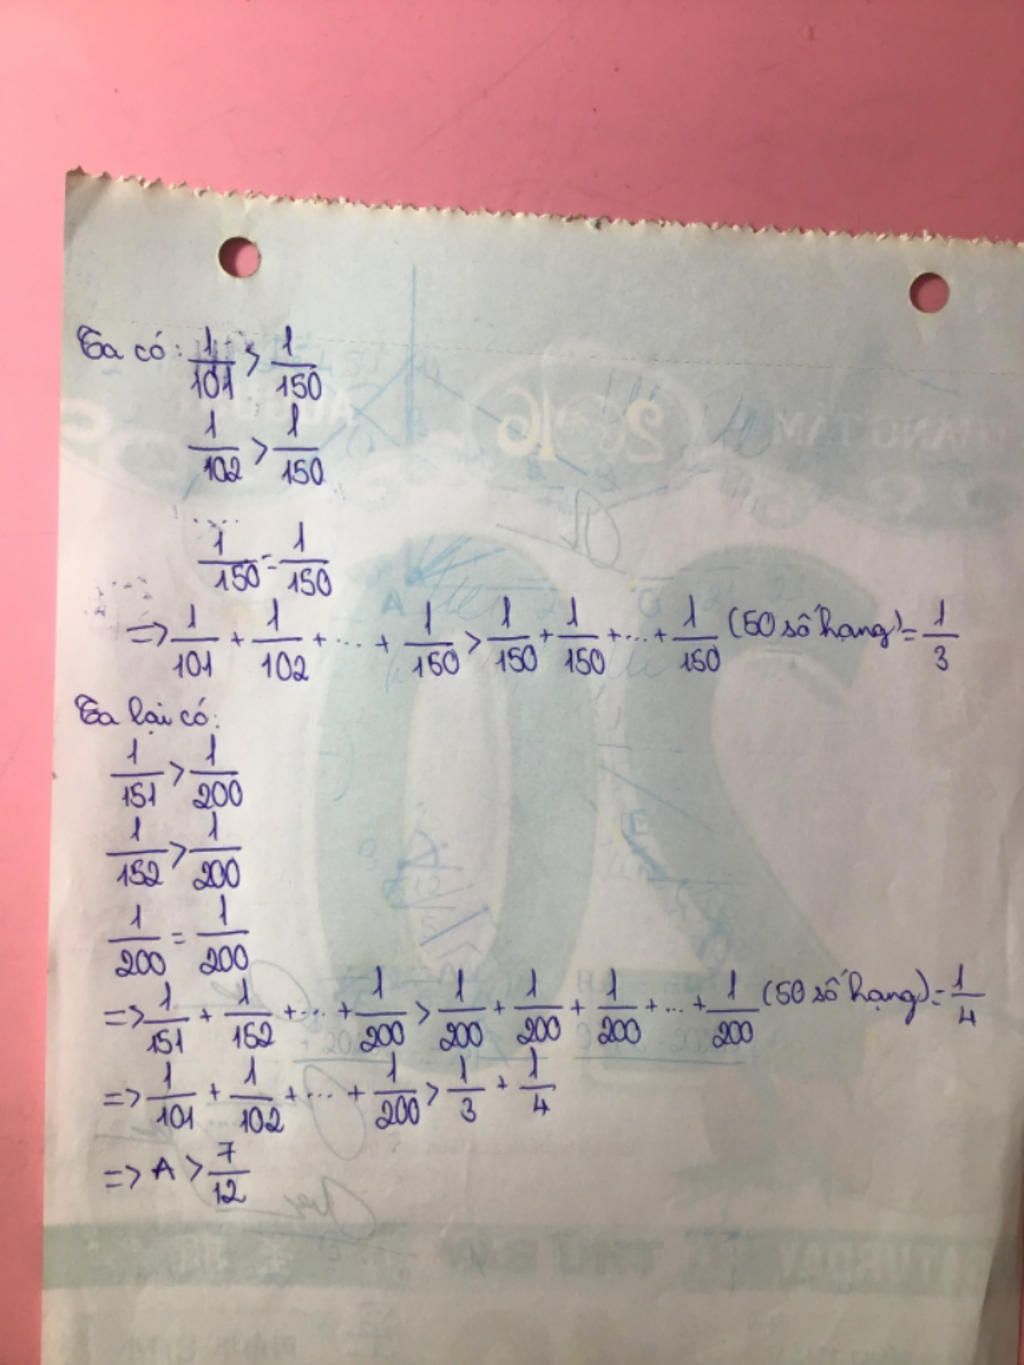 Ta có: 1/101 > 1/150
1/102 > 1/150
1/150 = 1/150
=> 1/101 + 1/102 + ... + 1/150 > 1/150 + 1/150 + ... + 1/150 (50 số hạng) = 1/3
Ta lại có:
1/151 > 1/200
1/152 > 1/200
1/200 = 1/200
=> 1/151 + 1/152 + ... + 1/200 > 1/200 + 1/200 + 1/200 + ... + 1/200 (50 số hạng) = 1/4
=> 1/101 + 1/102 + ... + 1/200 > 1/3 + 1/4
=> A > 7/12